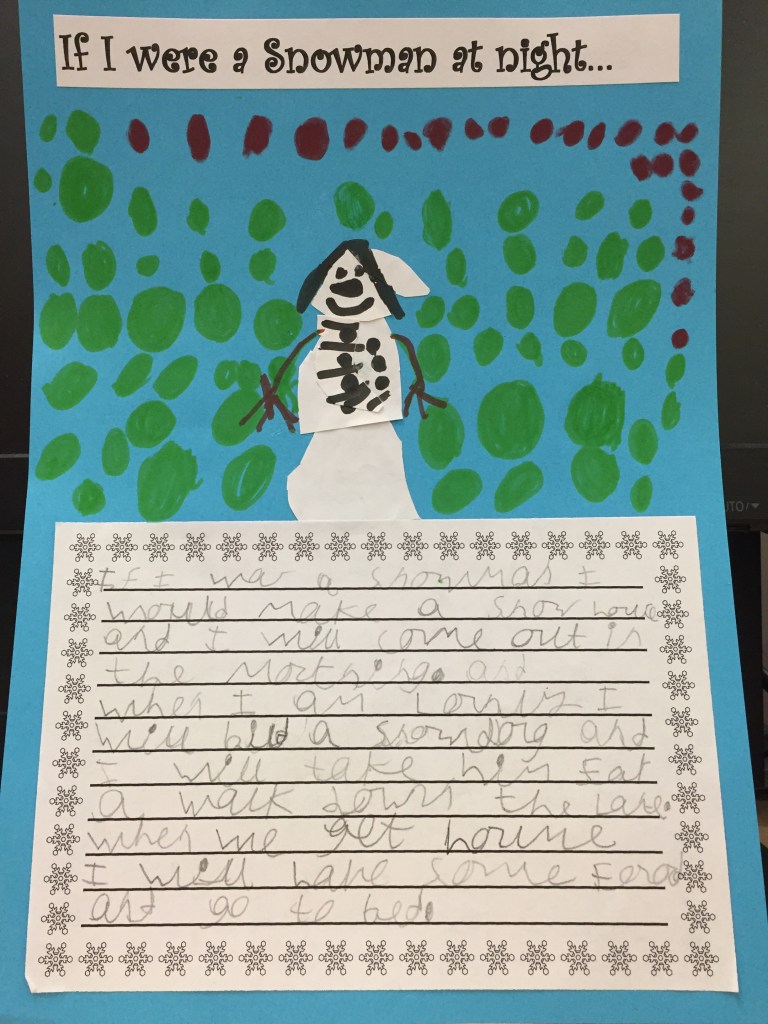 If I were a Snowman at night...
If I wer a snowman I
would make a snow house
and I will come out in
the mortning. and
when I am lonly I
will bild a snowdog and
I will take him for
a walk down the lane.
when we get home
I will have some food
and go to bed.
AUTO/